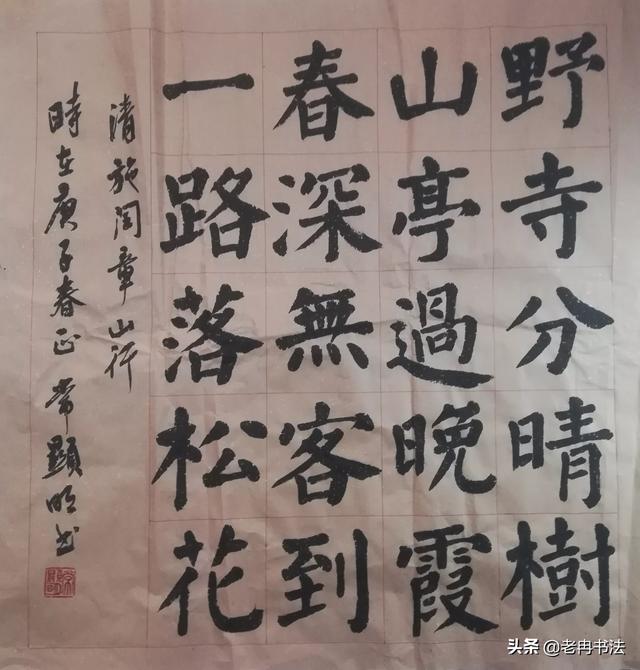 野寺分晴樹
山亭過晚霞
春深無客到
一路落松花
清施閏章山行
時在庚子春正常顯明书
头条@老冉书法